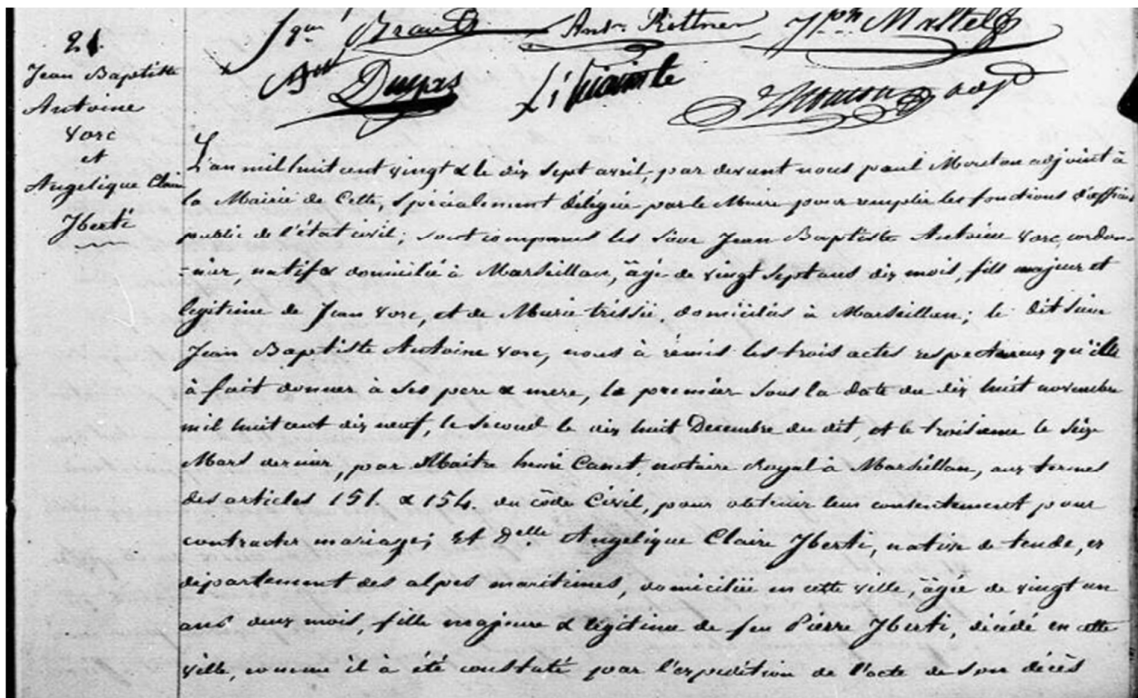 21.
Jean Baptiste
Antoine
Vorc
et
Angelique Claire
Yberti
Brau
Antne Rottner
Jph Mastel
Dupas
L'an mil huit cent vingt & le dix sept avril, par devant nous paul Moreton adjoint à
la Mairie de Cette, spécialement délégué par le Maire pour remplir les fonctions d'officier
public de l'état civil; sont comparus les Sieur Jean Baptiste Antoine Vorc, cordon-
-nier, natif & domicilié à Marseillan, âgé de vingt sept ans dix mois, fils majeur et
légitime de Jean Vorc, et de Marie trissié, domiciliés à Marseillan; le dit Sieur
Jean Baptiste Antoine Vorc, nous à remis les trois actes respectueux qu'ille
à fait donner à ses pere & mere, le premier sous la date du dix huit novembre
mil huit cent dix neuf, le second le dix huit Decembre du dit, et le troisième le seize
Mars dernier, par Maitre henri Canet, notaire Royal à Marseillan, aux termes
des articles 151. & 154. du côde Civil, pour obtenir leur consentement pour
contracter mariage; Et Delle Angelique Claire Yberti, native de tende, ex
département des alpes maritimes, domiciliée en cette ville, âgée de vingt un
ans deux mois, fille majeure & légitime de feu Pierre Yberti, décédé en cette
ville, comme il à été constaté par l'expédition de l'acte de son décès